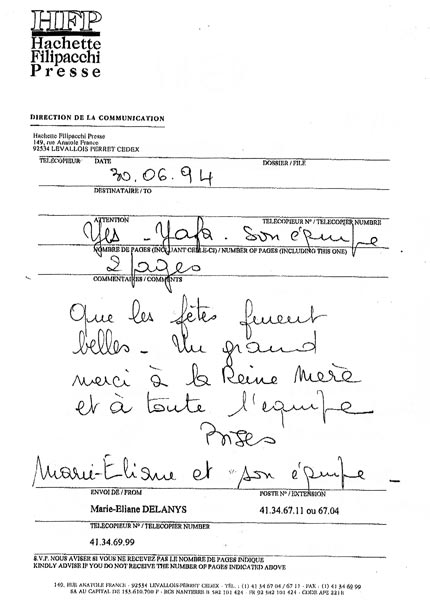 HFP
Hachette
Filipacchi
Presse
DIRECTION DE LA COMMUNICATION
Hachette Filipacchi Presse
149, rue Anatole France
92534 LEVALLOIS PERRET CEDEX
TÉLÉCOPIEUR DATE DOSSIER / FILE
30.06.94
DESTINATAIRE / TO
ATTENTION TELECOPIEUR N° / TELECOPIER NUMBRE
Yes - Yafa. Son équipe
NOMBRE DE PAGES (INCLUANT CELLE-CI) / NUMBER OF PAGES (INCLUDING THIS ONE)
2 pages
COMMENTAIRES / COMMENTS
Que les fêtes furent
belles - Un grand
merci à la Reine Mère
et à toute l'equipe
Bises
Marie-Eliane et son équipe -
ENVOI DE / FROM POSTE N° / EXTENSION
Marie-Eliane DELANYS 41.34.67.11 ou 67.04
TELECOPIEUR N° / TELECOPIER NUMBER
41.34.69.99
S.V.P. NOUS AVISER SI VOUS NE RECEVEZ PAS LE NOMBRE DE PAGES INDIQUE
KINDLY ADVISE IF YOU DO NOT RECEIVE THE NUMBER OF PAGES INDICATED ABOVE
149, RUE ANATOLE FRANCE - 92534 LEVALLOIS-PERRET CEDEX - TÉL. : (1) 41 34 67 04 / 67 11 - FAX : (1) 41 34 69 99
SA AU CAPITAL DE 153.610.700 F - RCS NANTERRE B 582 101 424 - FR 92 582 101 424 - CODE APE 221E